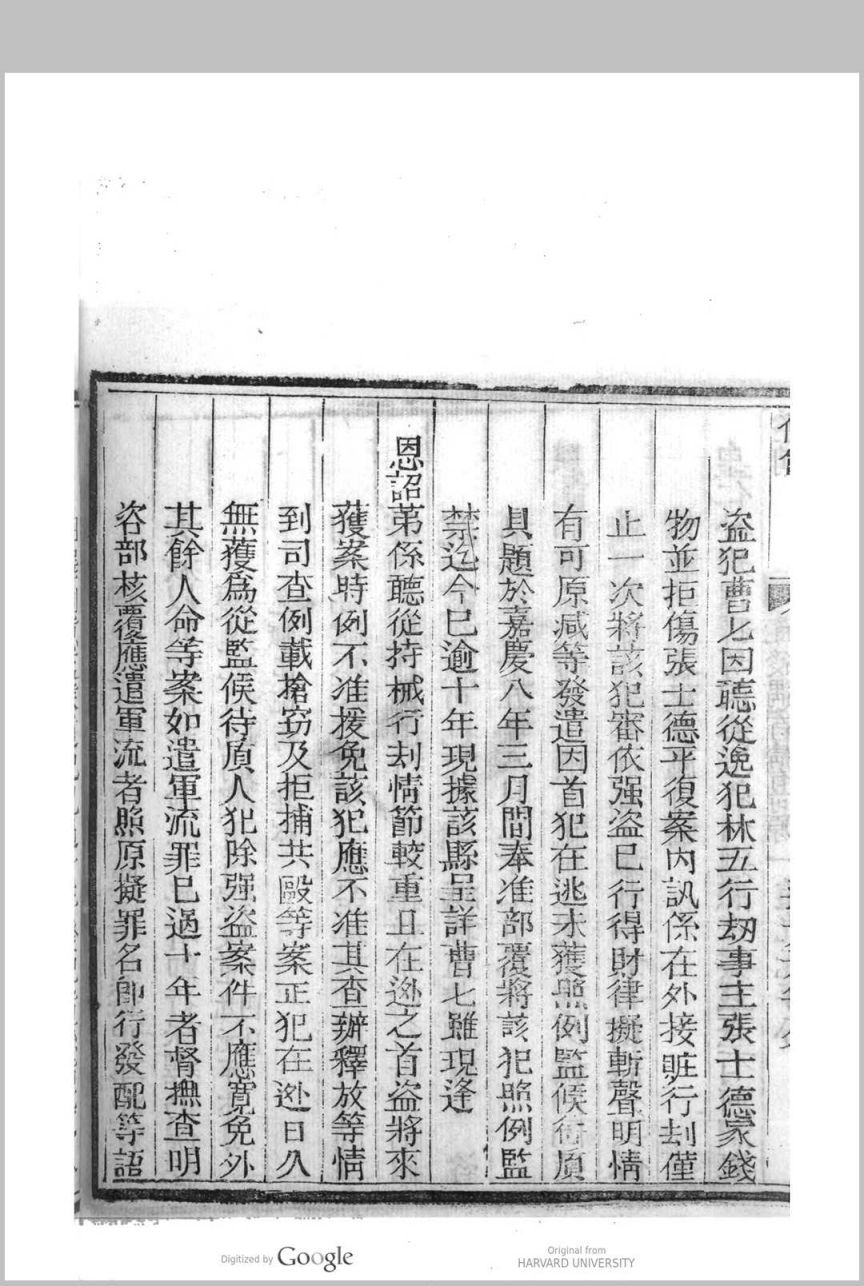 盜犯曹七因聽從逸犯林五行刼事主張士德家錢
物並拒傷張士德平復案内訊係在外接賍行刦僅
止一次將該犯審依强盗巳行得財律擬斬聲明情
有可原减等發遣因首犯在逃未獲照例監候待質
具題於嘉慶八年三月間奉准部覆將該犯照例監
禁迄今巳逾十年現據該縣呈詳曹七雖現逢
恩詔第係聽從持械行刦情節較重且在迯之首盗將來
獲案時例不准援免該犯應不准其查辦釋放等情
到司查例載搶窃及拒捕共毆等案正犯在迯日久
無獲爲從監候待質人犯除强盗案件不應寛免外
其餘人命等案如遣軍流罪巳過十年者督撫查明
咨部核覆應遣軍流者照原擬罪名卽行發配等語
Digitized by Google
Original from
HARVARD UNIVERSITY